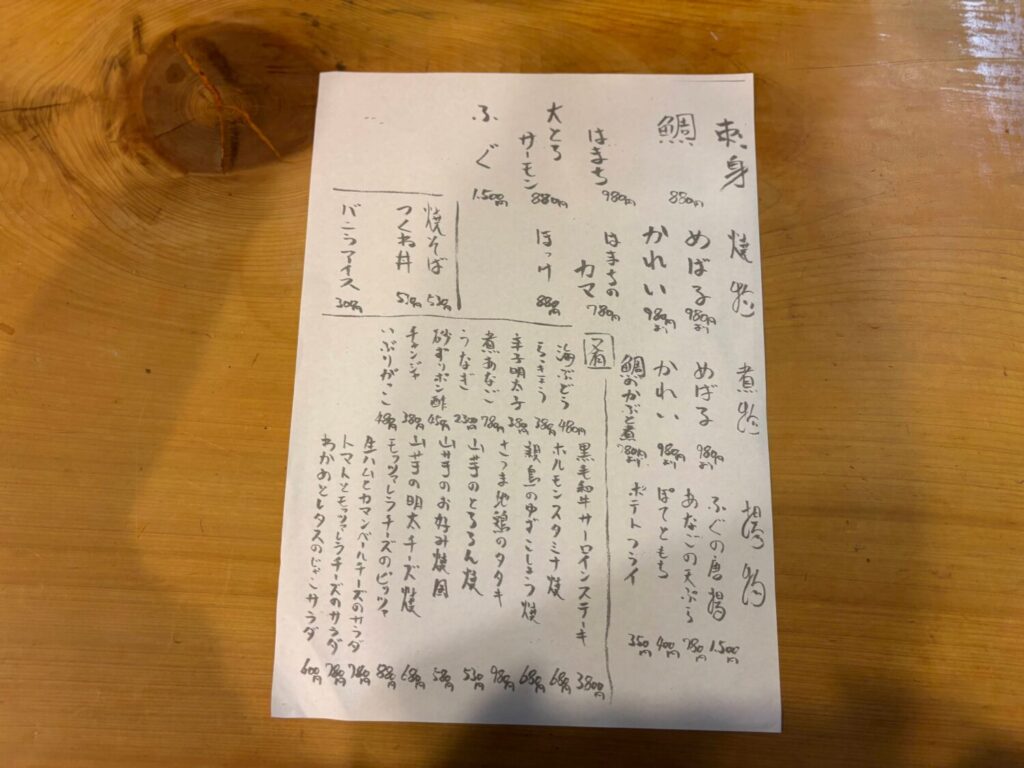 刺身
鯛 850円
はまち 980円
大とろサーモン 880円
ふぐ 1.500円
焼物
めばる 980円より
かれい 980円より
はまちのカマ 780円
ほっけ 880円
焼そば 530円
つくね丼 530円
バニラアイス 300円
煮物
めばる 980円より
かれい 980円より
鯛のかぶと煮 780円より
揚物
ふぐの唐揚 1.500円
あなごの天ぷら 780円
ぽてともち 400円
ポテトフライ 350円
海ぶどう 480円
らっきょう 380円
辛子明太子 380円
煮あなご 780円
うなぎ
砂ずりポン酢 450円
チャンジャ 380円
いぶりがっこ 480円
黒毛和牛サーロインステーキ 3.800円
ホルモンスタミナ焼 680円
親鳥のゆずこしょう焼 680円
さつま地鶏のタタキ 980円
山芋のとろろん焼 530円
山芋のお好み焼風 580円
山芋の明太チーズ焼 680円
モッツァレラチーズのピッツァ 880円
生ハムとカマンベールチーズのサラダ 780円
トマトとモッツァレラチーズのサラダ 780円
わかめとレタスのじゃこサラダ 600円